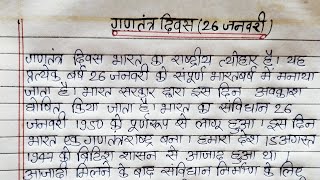 गणतंत्र दिवस (26 जनवरी)
गणतंत्र दिवस भारत का राष्ट्रीय त्यौहार है। यह
प्रत्येक वर्ष 26 जनवरी को संपूर्ण भारतवर्ष में मनाया
जाता है। भारत सरकार द्वारा इस दिन अवकाश
घोषित किया जाता है। भारत का संविधान 26
जनवरी 1950 को पूर्णरूप से लागू हुआ। इस दिन
भारत एक गणतंत्र राष्ट्र बना। हमारा देश 15 अगस्त
1947 को ब्रिटिश शासन से आजाद हुआ था।
आजादी मिलने के बाद संविधान निर्माण के लिए